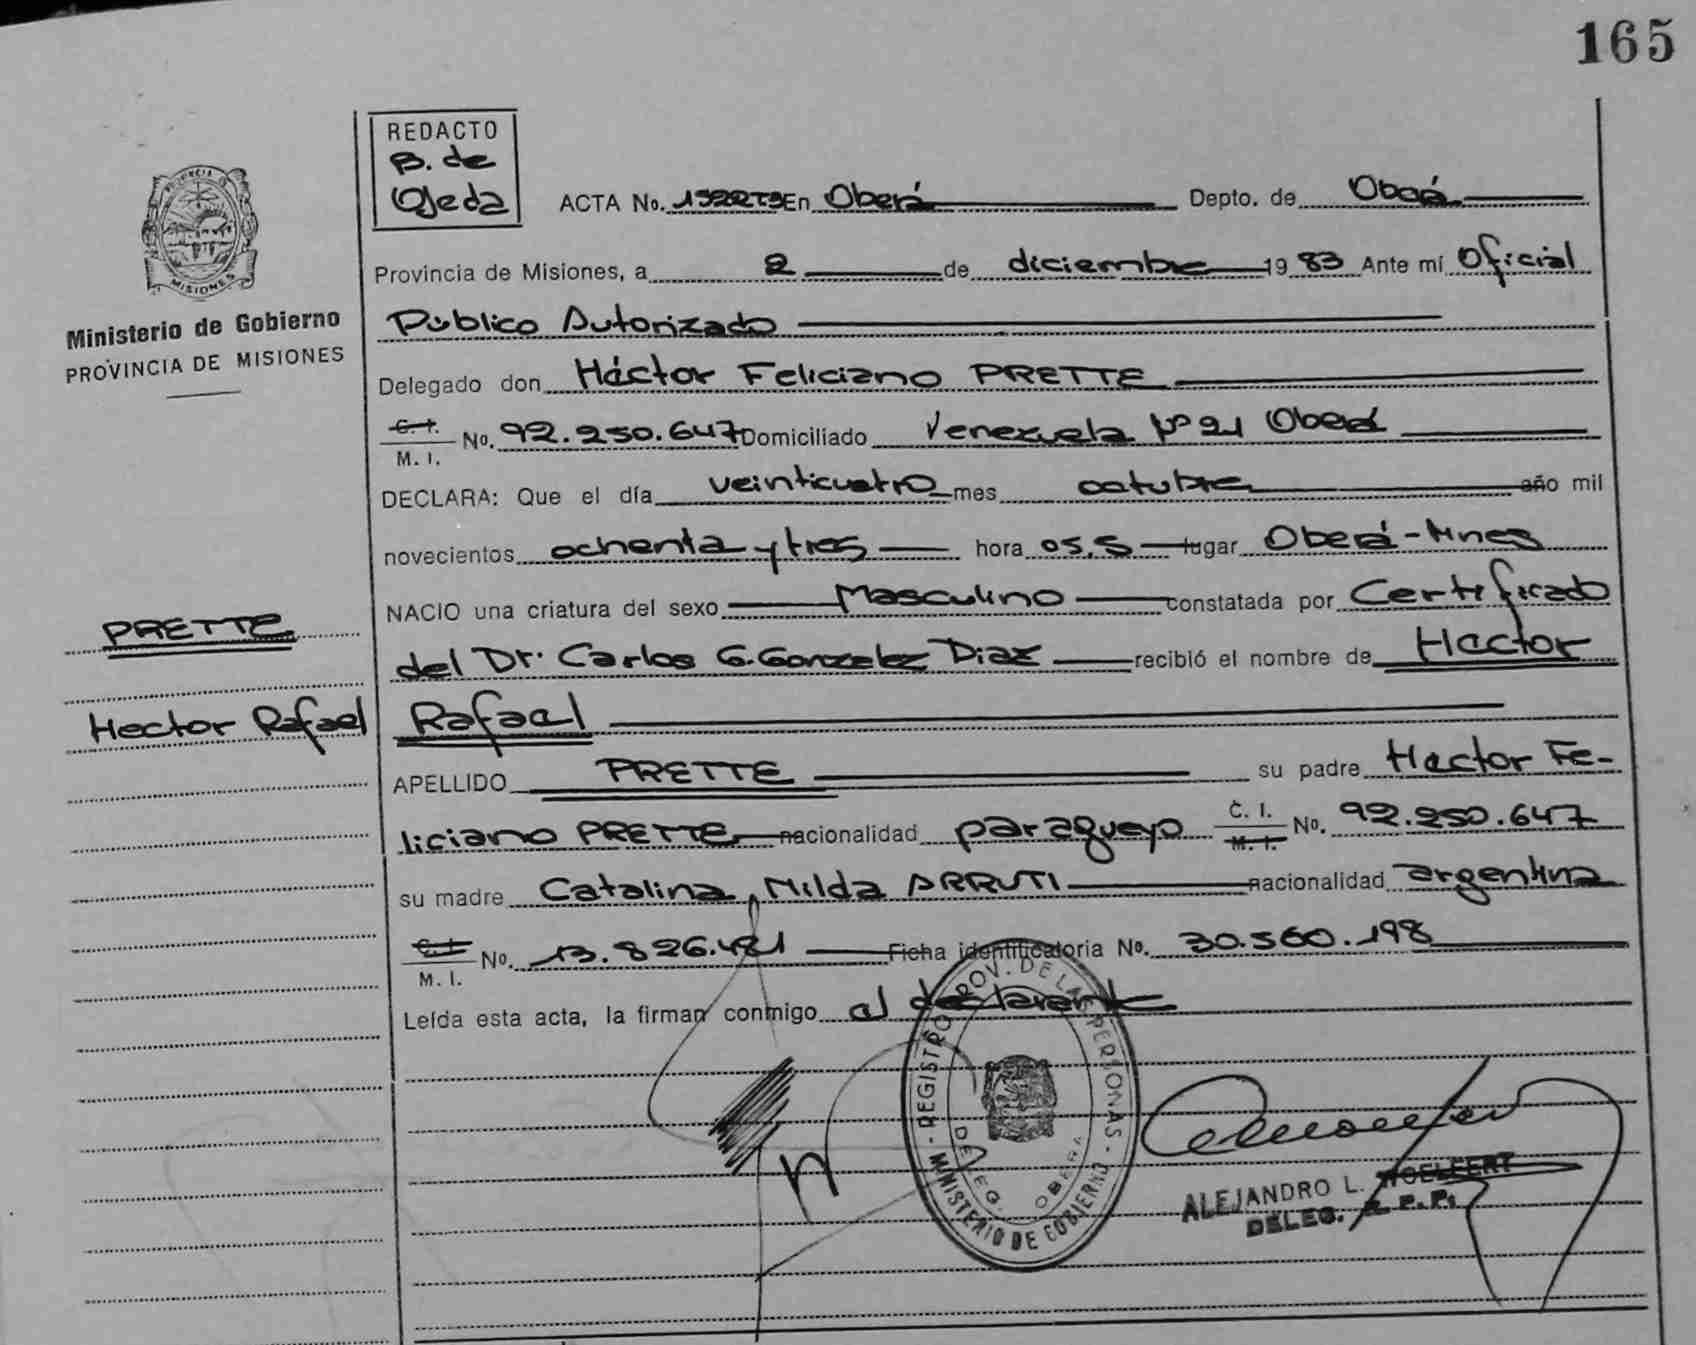 165
REDACTO
B. de
Ojeda
ACTA No. 1522T3 En Oberá Depto. de Oberá
PROVINCIA DE
MISIONES
Provincia de Misiones, a 2 de diciembre 19 83 Ante mí Oficial
Ministerio de Gobierno
PROVINCIA DE MISIONES
Público Autorizado
Delegado don Héctor Feliciano PRETTE
C. I.
M. I. No. 92.250.647 Domiciliado Venezuela Nº 21 Oberá
DECLARA: Que el día veinticuatro mes octubre año mil
novecientos ochenta y tres hora 05,5 lugar Oberá-Mnes
NACIO una criatura del sexo Masculino constatada por Certificado
PRETTE
del Dr. Carlos G. Gonzalez Diaz recibió el nombre de Hector
Hector Rafael
Rafael
APELLIDO PRETTE su padre Hector Fe-
liciano PRETTE nacionalidad paraguayo C. I. M. I. No. 92.250.647
su madre Catalina, Milda ARRUTI nacionalidad argentina
C. I.
M. I. No. 13.826.421 Ficha identificatoria No. 30.560.198
Leída esta acta, la firman conmigo el declarante
REGISTRO PROV. DE LAS PERSONAS - MINISTERIO DE GOBIERNO -
DELEG. OBERA
ALEJANDRO L. WOELFERT
DELEG. R. P. P.